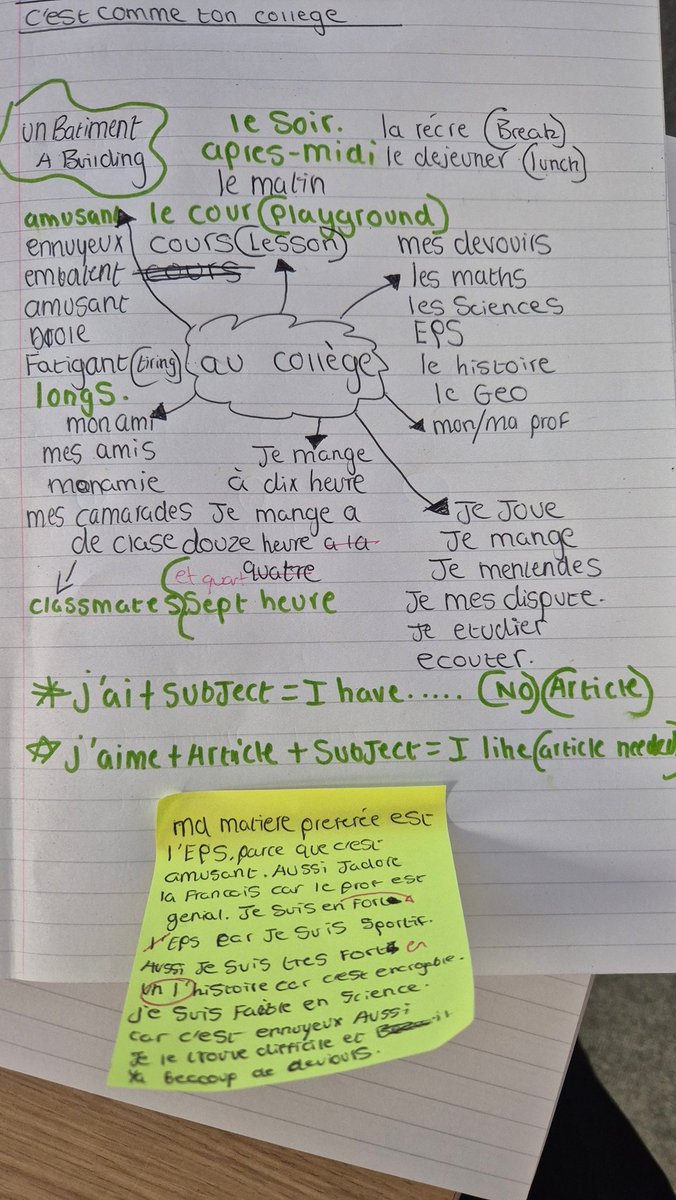 c'est comme ton college
un Batiment
A Building
le soir.
apres-midi
le matin
la récre (Break)
le dejeuner (lunch)
amusant
ennuyeux
embalent
amusant
Fatigant (tiring)
longs.
le cour (playground)
cours (Lesson)
cours
mes devouirs
les maths
les Sciences
EPS
le histoire
le Geo
mon/ma prof
au collège
mon ami
mes amis
monamie
mes camarades
de clase
classmates
Je mange
à dix heure
Je mange a
douze heure a la
quatre
et quart
Sept heure
Je Joue
Je mange
Je menlendes
Je mes dispute.
Je etudier
ecouter.
* j'ai + subject = I have ..... (NO) (Article)
☆ j'aime + Article + Subject = I like (article needed)
ma matiere preferée est
l'EPS, parce que c'est
amusant. Aussi Jadore
la Francais car le prof est
genial. Je suis en fort
l'EPS car Je suis Sportif.
Aussi Je suis tres Fort en
un l'histoire car cest encroyable.
Je suis Faible en Science.
car c'est ennuyeux Aussi
Je le trouve difficile et il
ya beccoup de deviours.